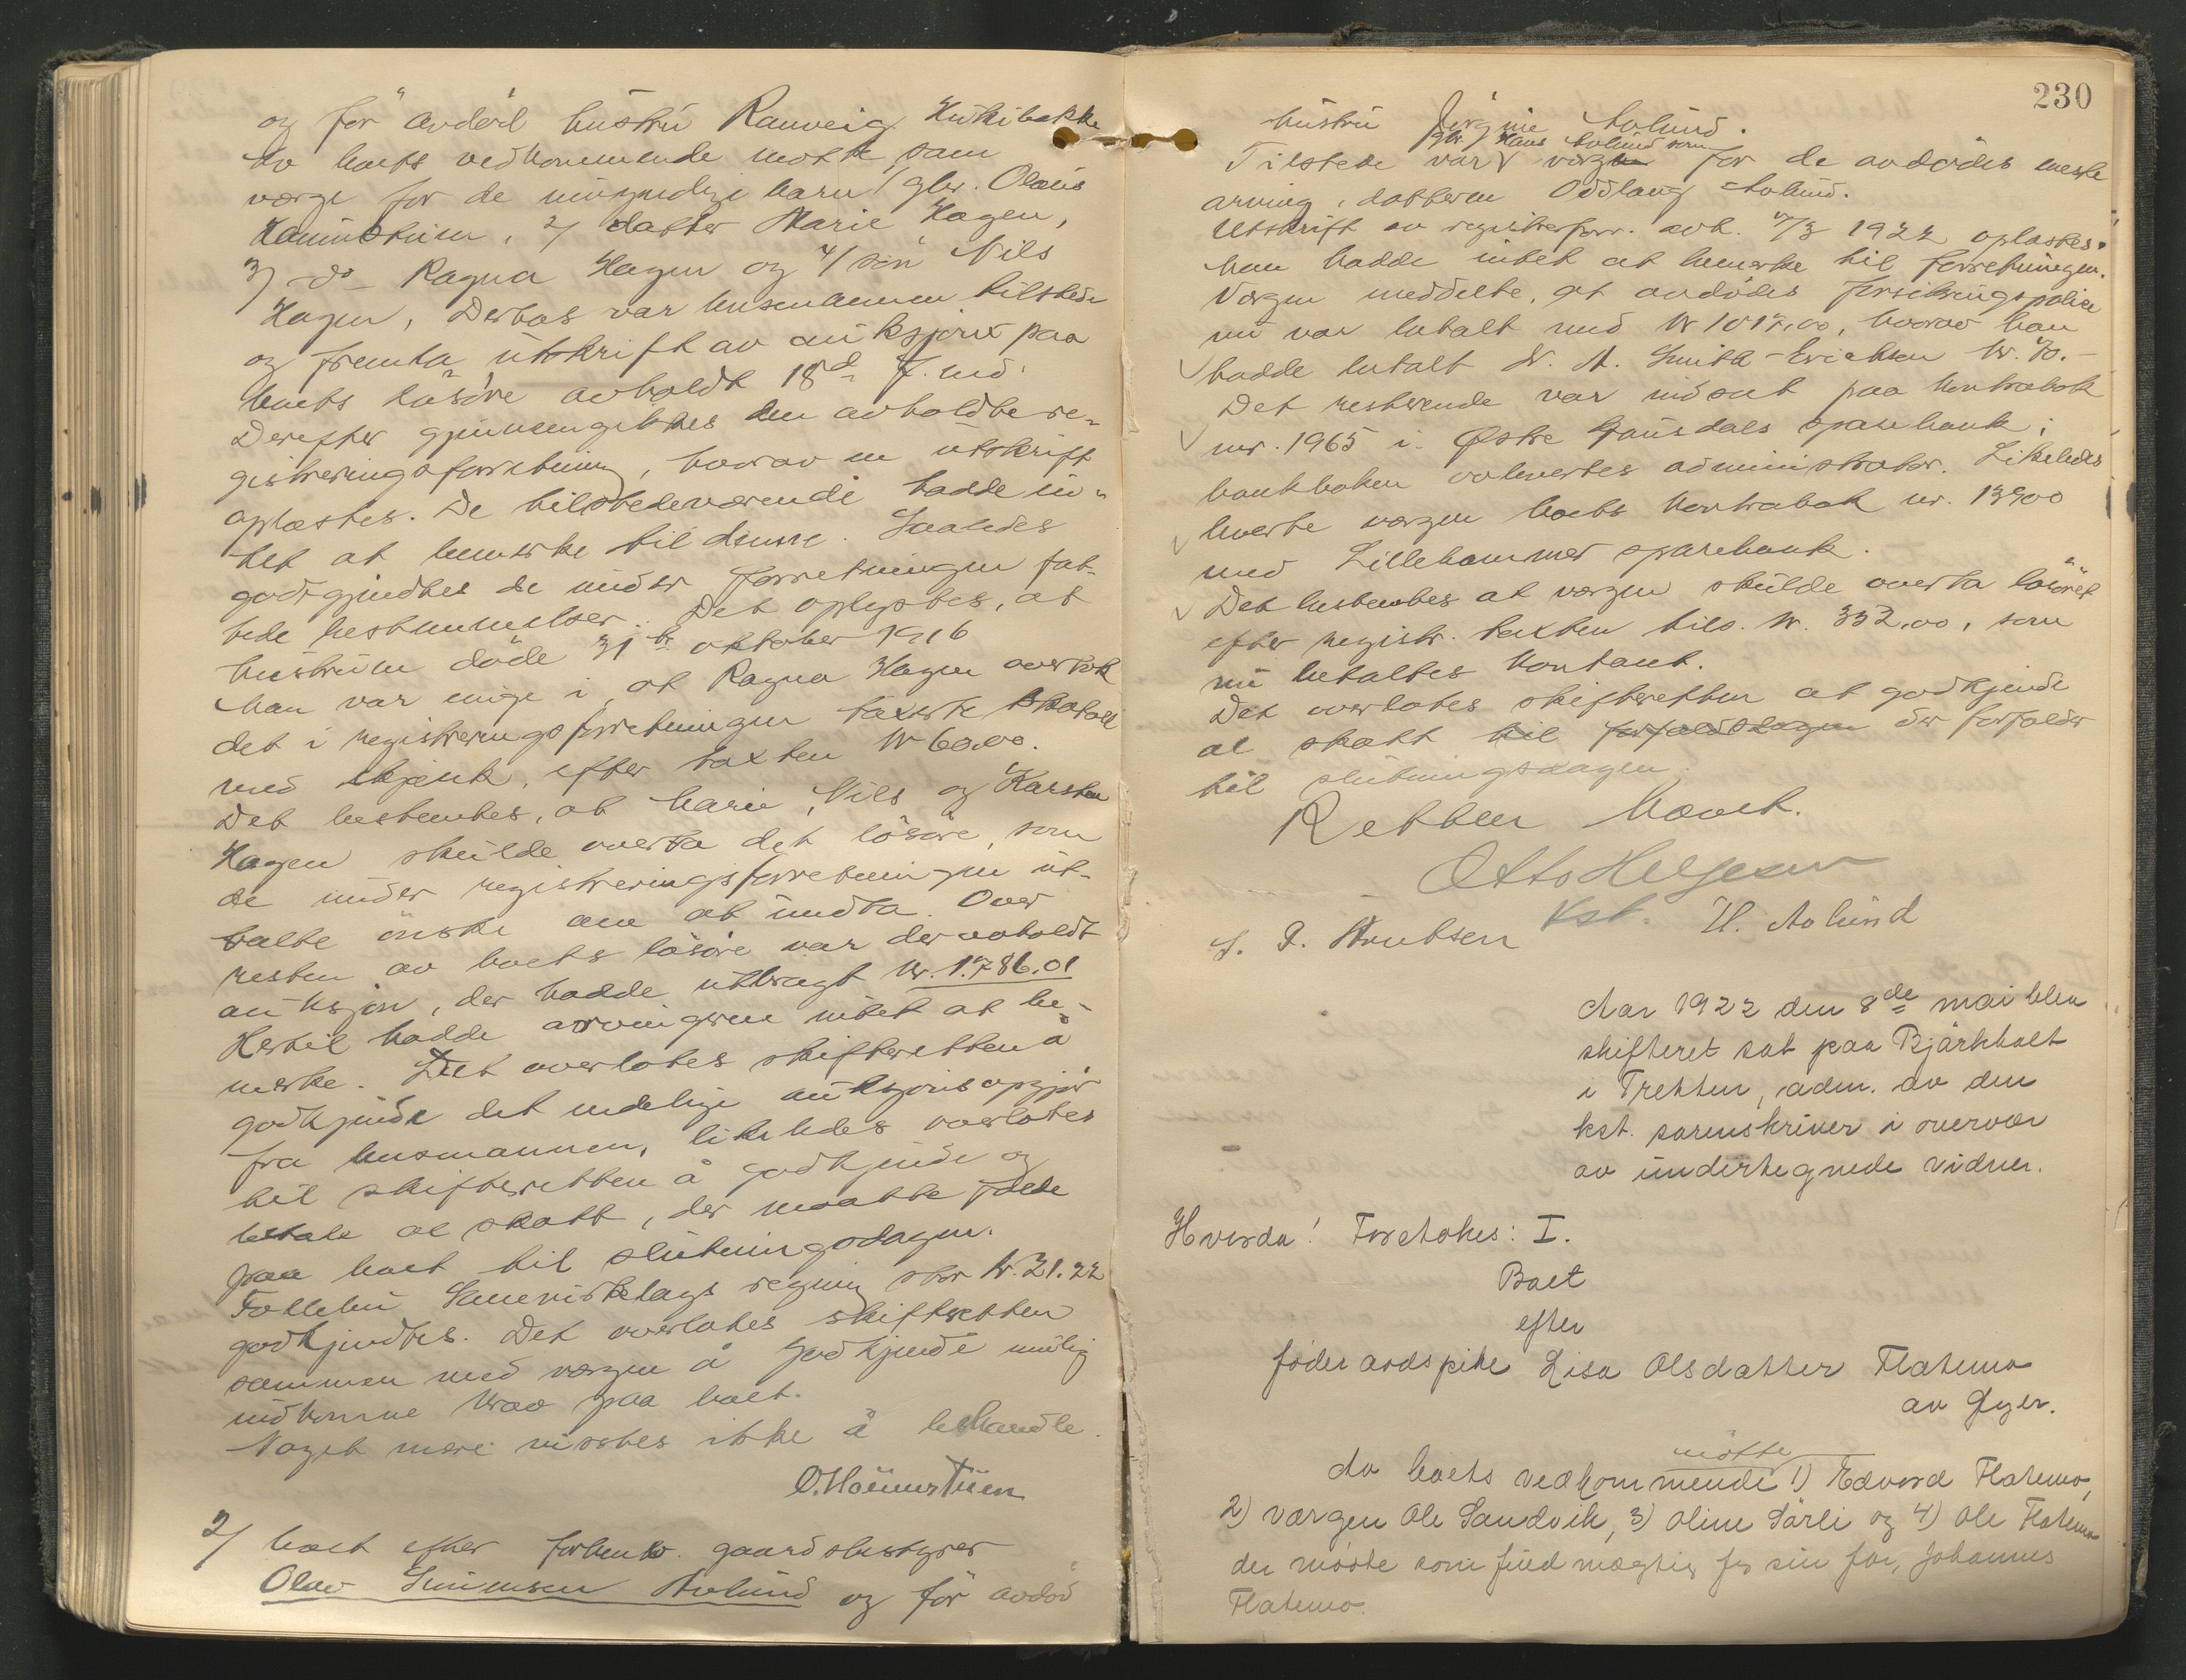 og før avdød hustru Ranveig
Av boets vedkommende møtte som
værge for de umyndige barn 1/ gbr. Olaus
Haüustuen, 2/ datter Marie Hagen,
3/ do Ragna Hagen og 4/ søn Nils
Hagen, Derhos var lensmannen tilstede
og fremla utskrift av auksjon paa
boets løsøre avholdt 18d f. md.
Derefter gjennemgikkes den avholdte re-
gistreringsforretning, hvorav en utskrift
oplæstes. De tilstedeværende hadde in-
tet at bemerke til denne. Saaledes
godkjendtes de under forretningen fat-
tede bestemmelser. Det oplystes, at
hustruen døde 31te oktober 1916
Man var enige i, at Ragna Hagen overtok
det i registreringsforretningen taxerte skatoll
med skjænk, efter taxten kr 60.00.
Det bestemtes, at Marie, Nils og Karsten
Hagen skulde overta det løsøre, som
de under registreringsforretningen ut-
talte ønske om at undta. Over
resten av boets løsøre var der avholdt
auksjon, der hadde utbragt kr. 1.786.01
Hertil hadde arvingerne intet at be-
merke. Det overlotes skifteretten å
godkjende det endelige auksjonsopgjør
fra lensmannen, likeledes overlotes
til skifteretten å godkjende og
betale al skatt, der maatte falde
paa boet til slutningsdagen.
Follebu Samvirkelags regning stor kr. 21.22
godkjendtes. Det overlotes skifteretten
sammen med værgen å godkjende mulig
indkomne krav paa boet.
Noget mere vistes ikke å behandle.
O. Haüustuen
2/ boet efter forhenv. gaardsbestyrer
Olav Simensen Aolund og før avdød
230
hustru Jørgine Aolund.
gbr. Hans Aolund som
Tilstede var værge for de avdødes eneste
arving, datteren Oddlaug Aolund.
Utskrift av registerforr. avh. 7/3 1922 oplæstes.
Man hadde intet at bemerke til forretningen.
Værgen meddelte, at avdødes forsikringspolice
nu var betalt med kr 1017.00, hvorav han
hadde betalt dr. A. Smith-Erichsen kr. 70.-
Det resterende var indsat paa kontrabok
nr. 1965 i Østre Gausdals sparebank;
bankboken overlevertes administrator. Likeledes
leverte værgen boets kontrabok nr. 13900
med Lillehammer sparebank.
Det bestemtes at værgen skulde overta løsøret
efter registr. taxten tils. kr. 332.00, som
nu betaltes kontant.
Det overlotes skifteretten at godkjende
al skatt til forfaldsdagen der forfalder
til slutningsdagen.
Retten hævet.
Otto Helgesen
kst. H. Aolund
Aar 1922 den 8de mai blev
skifteret sat paa Bjärkholt
i Tretten, adm. av den
kst. sorenskriver i overvær
av undertegnede vidner.
Hvorda! Foretokes: I.
Boet
efter
føderaadspike Lisa Olsdatter Flatemo
av Øyer.
møtte
Av boets vedkommende 1) Edvard Flatemo,
2) værgen Ole Sandvik, 3) Oline Särli og 4) Ole Flatemo
der møtte som fuldmægtig for sin far, Johannes
Flatemo.